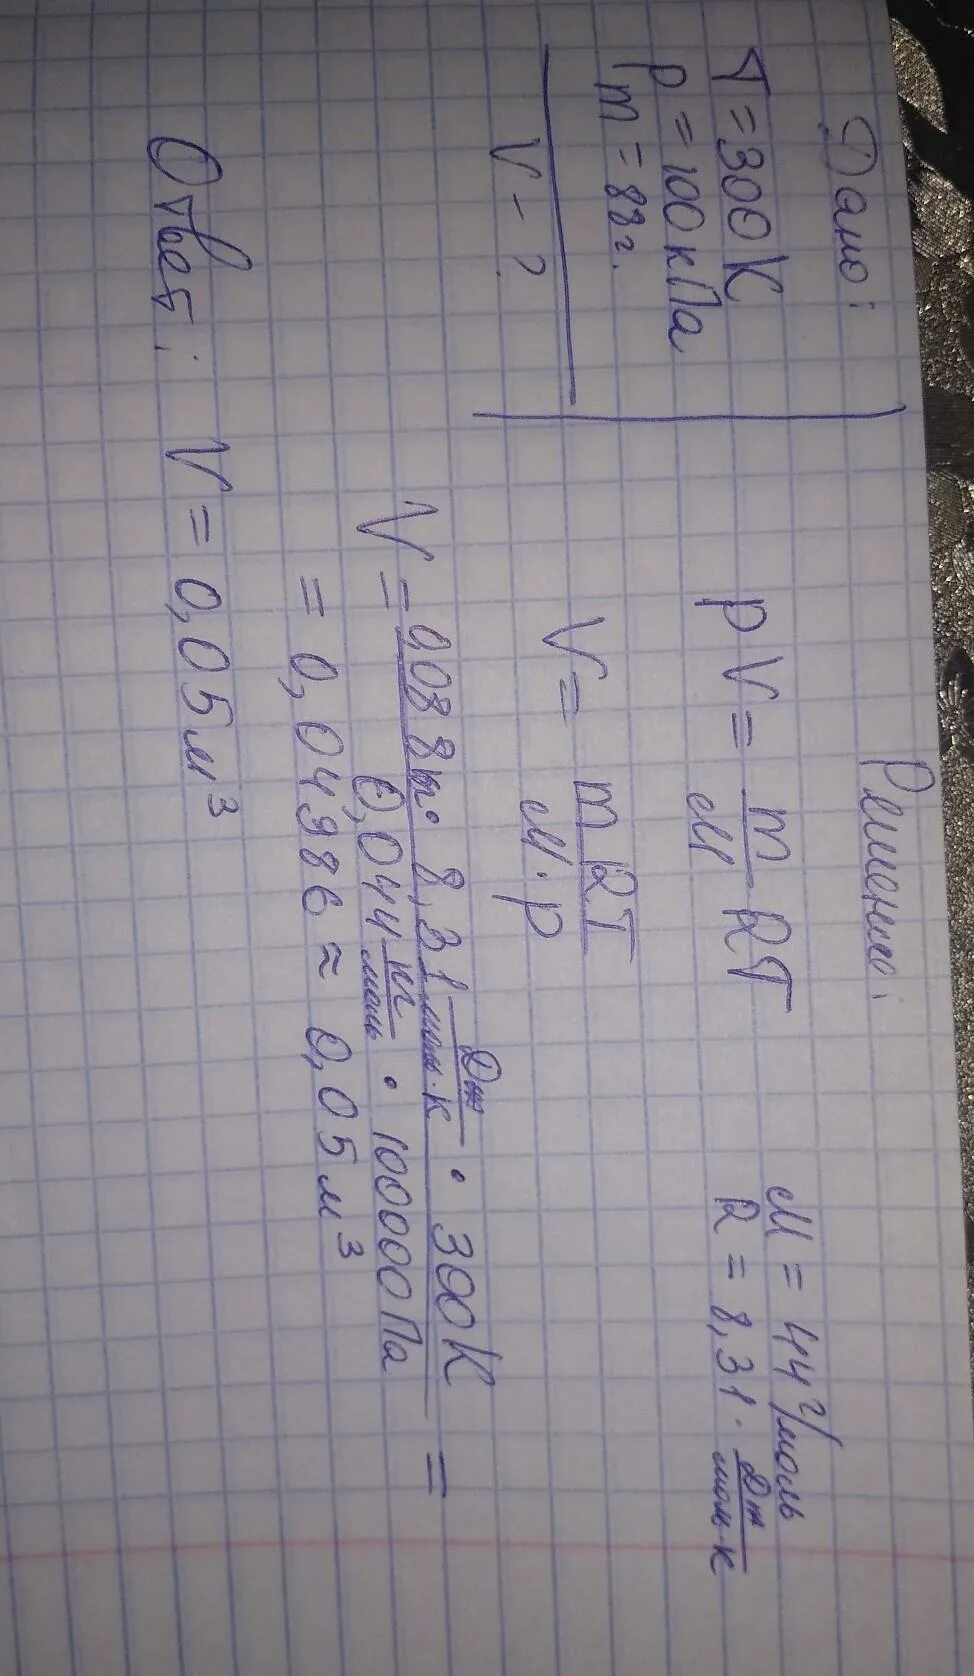 Дано:
T = 300 К
p = 100 кПа
m = 88 г.
V - ?
Решение:
pV = m/M RT
V = mRT/M·p
M = 44 г/моль
R = 8,31 · Дж/моль·К
V = 0,088 кг · 8,31 Дж/моль·К · 300 К / 0,044 кг/моль · 100000 Па =
= 0,04986 ≈ 0,05 м³
Ответ: V = 0,05 м³